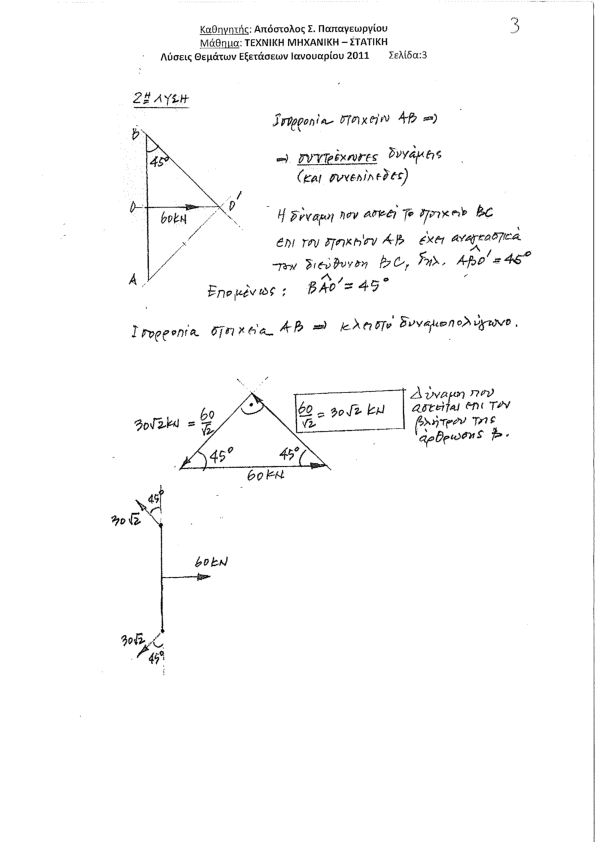 3
Καθηγητής: Απόστολος Σ. Παπαγεωργίου
Μάθημα: ΤΕΧΝΙΚΗ ΜΗΧΑΝΙΚΗ – ΣΤΑΤΙΚΗ
Λύσεις Θεμάτων Εξετάσεων Ιανουαρίου 2011 Σελίδα:3
2Η ΛΥΣΗ
Ισορροπία στοιχείου ΑΒ ⇒
⇒ συντρέχουσες δυνάμεις
(και συνεπίπεδες)
Η δύναμη που ασκεί το στοιχείο BC
επί του στοιχείου ΑΒ έχει αναγκαστικά
την διεύθυνση BC, δηλ. ΑB̂O' = 45°
B
45°
O
60KN
O'
A
Επομένως: BÂO' = 45°
Ισορροπία στοιχεία ΑΒ ⇒ κλειστό δυναμοπολύγωνο.
30√2 KN = 60/√2
60/√2 = 30√2 KN
Δύναμη που
ασκείται επί του
βλήτρου της
άρθρωσης B.
45°
45°
60KN
45°
30√2
60KN
30√2
45°